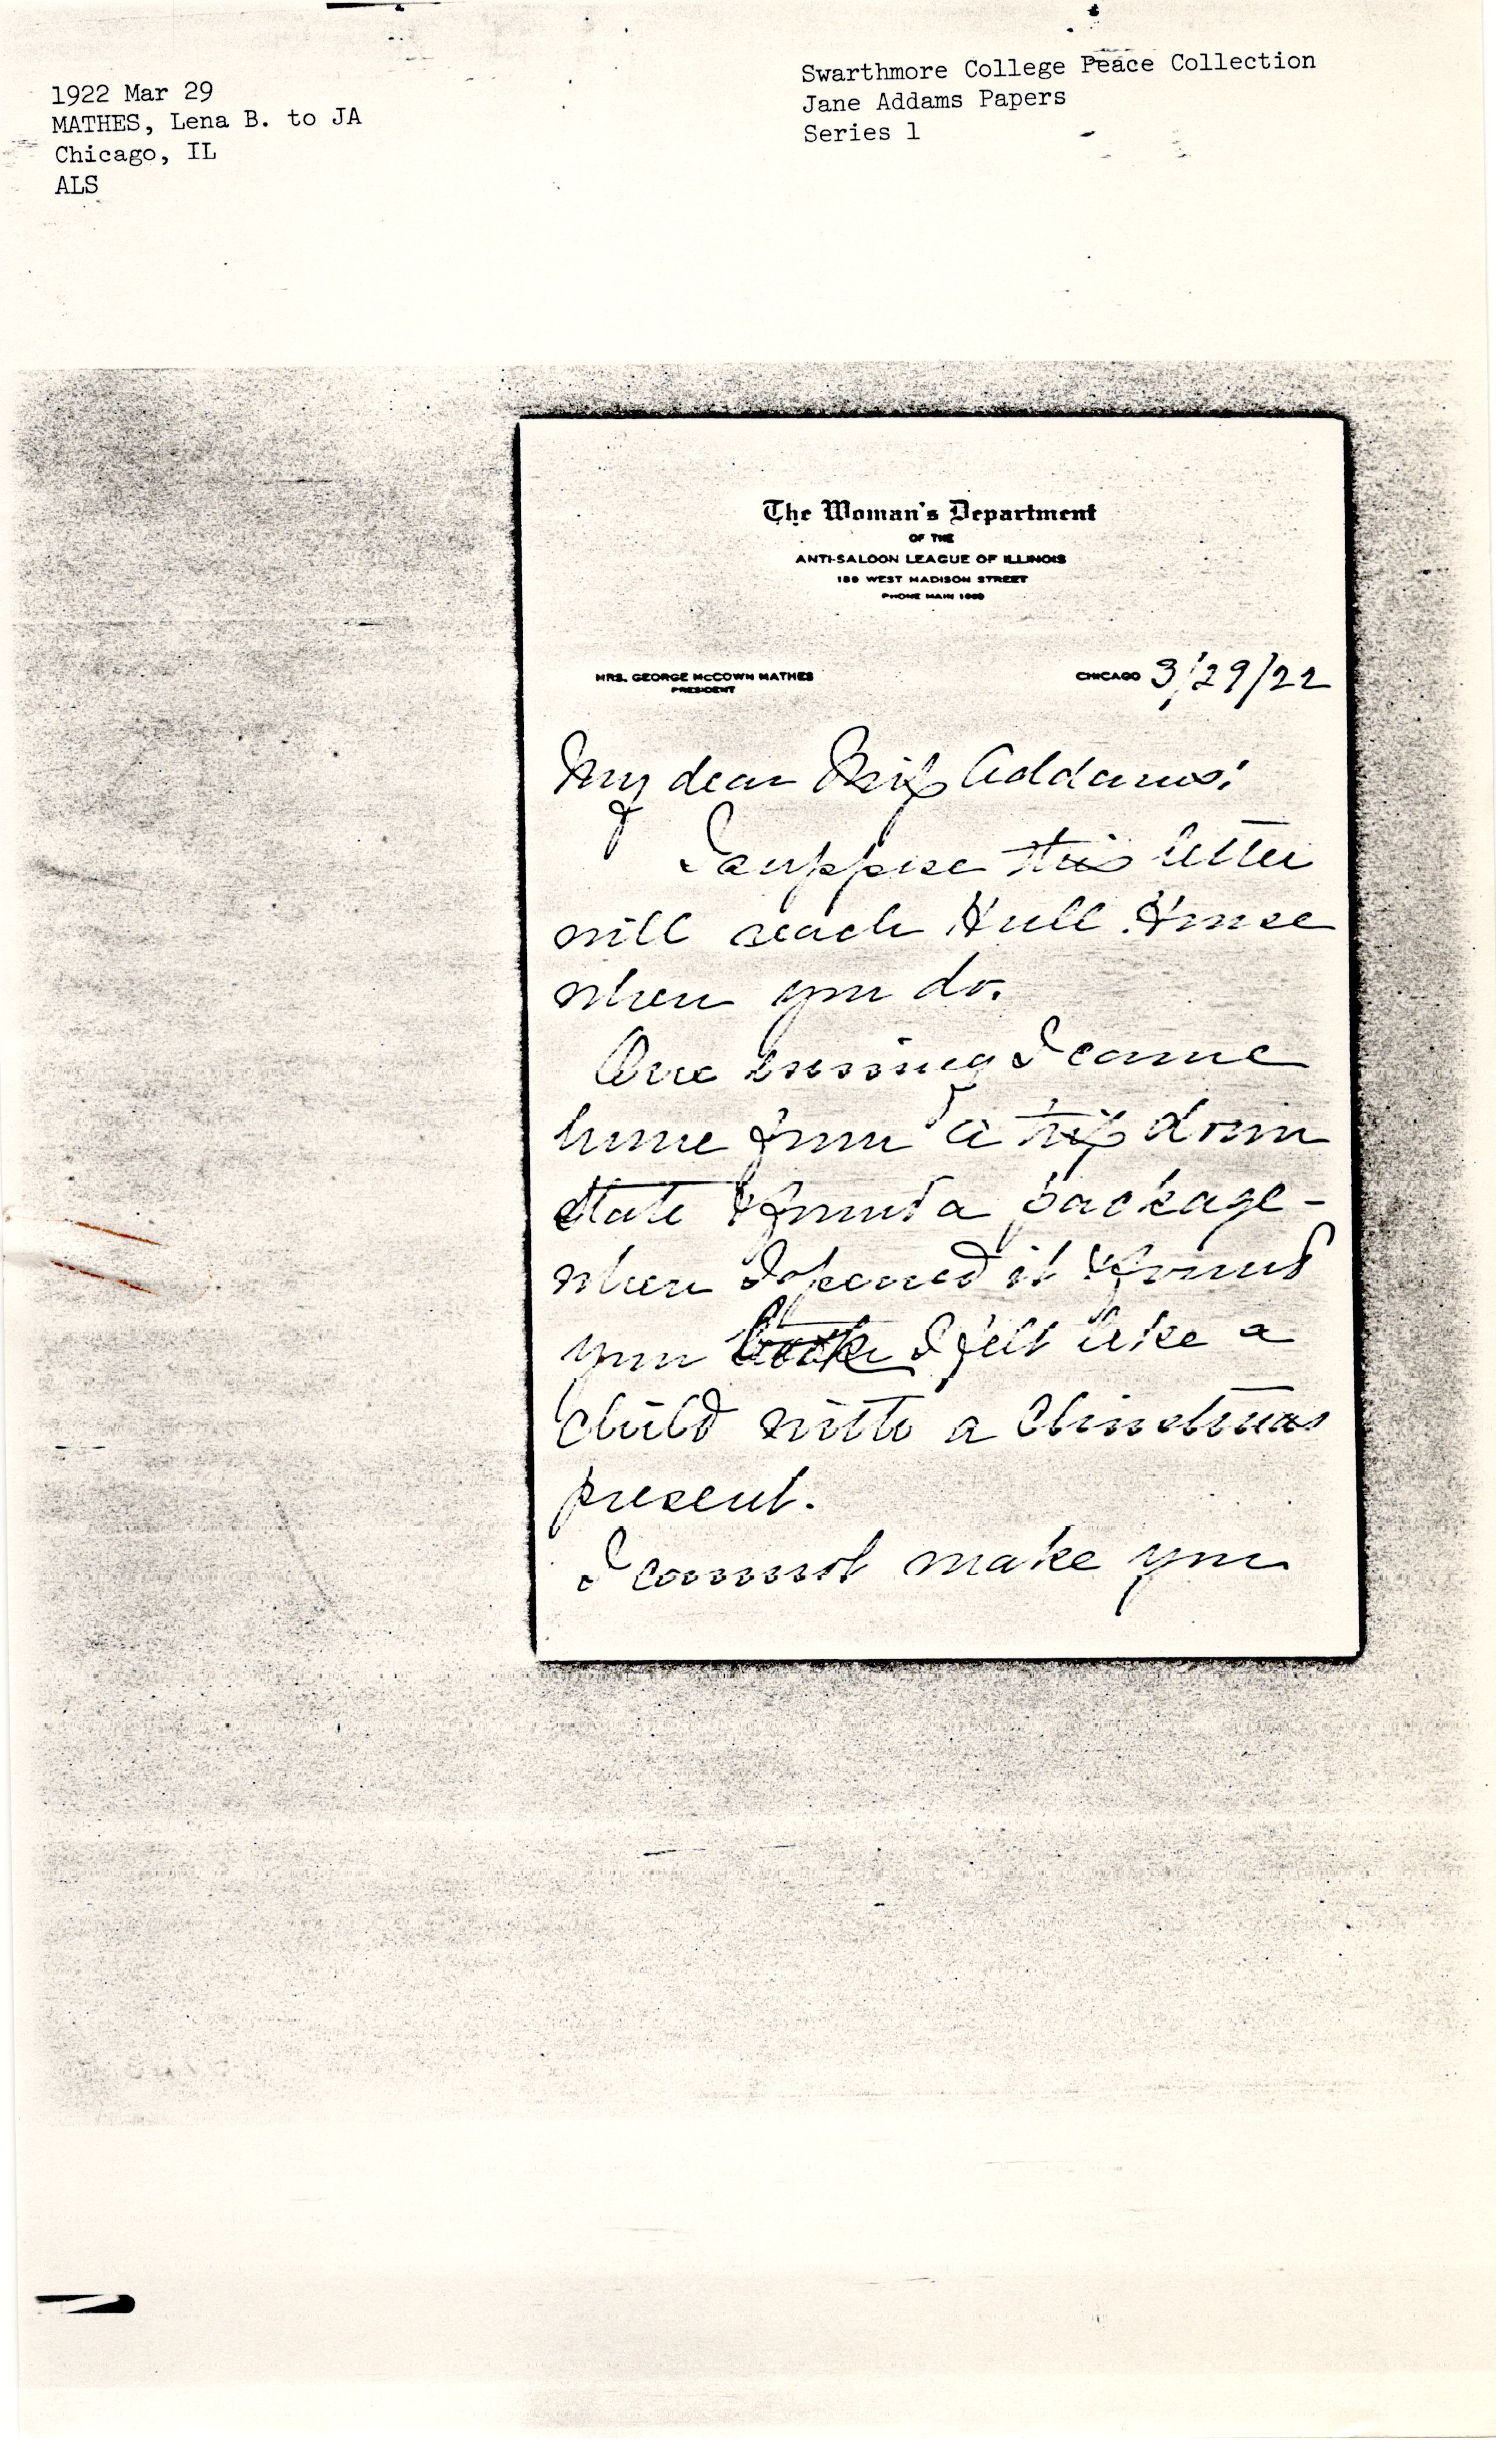 1922 Mar 29
MATHES, Lena B. to JA
Chicago, IL
ALS
Swarthmore College Peace Collection
Jane Addams Papers
Series 1
The Woman's Department
OF THE
ANTI-SALOON LEAGUE OF ILLINOIS
189 WEST MADISON STREET
PHONE MAIN
MRS. GEORGE McCOWN MATHES
PRESIDENT
CHICAGO 3/29/22
My dear Miss Addams:
I suppose this letter
will reach Hull House
when you do.
One evening I came
home from a trip down
state & found a package -
when I opened it & found
your book I felt like a
child with a Christmas
present.
I cannot make you